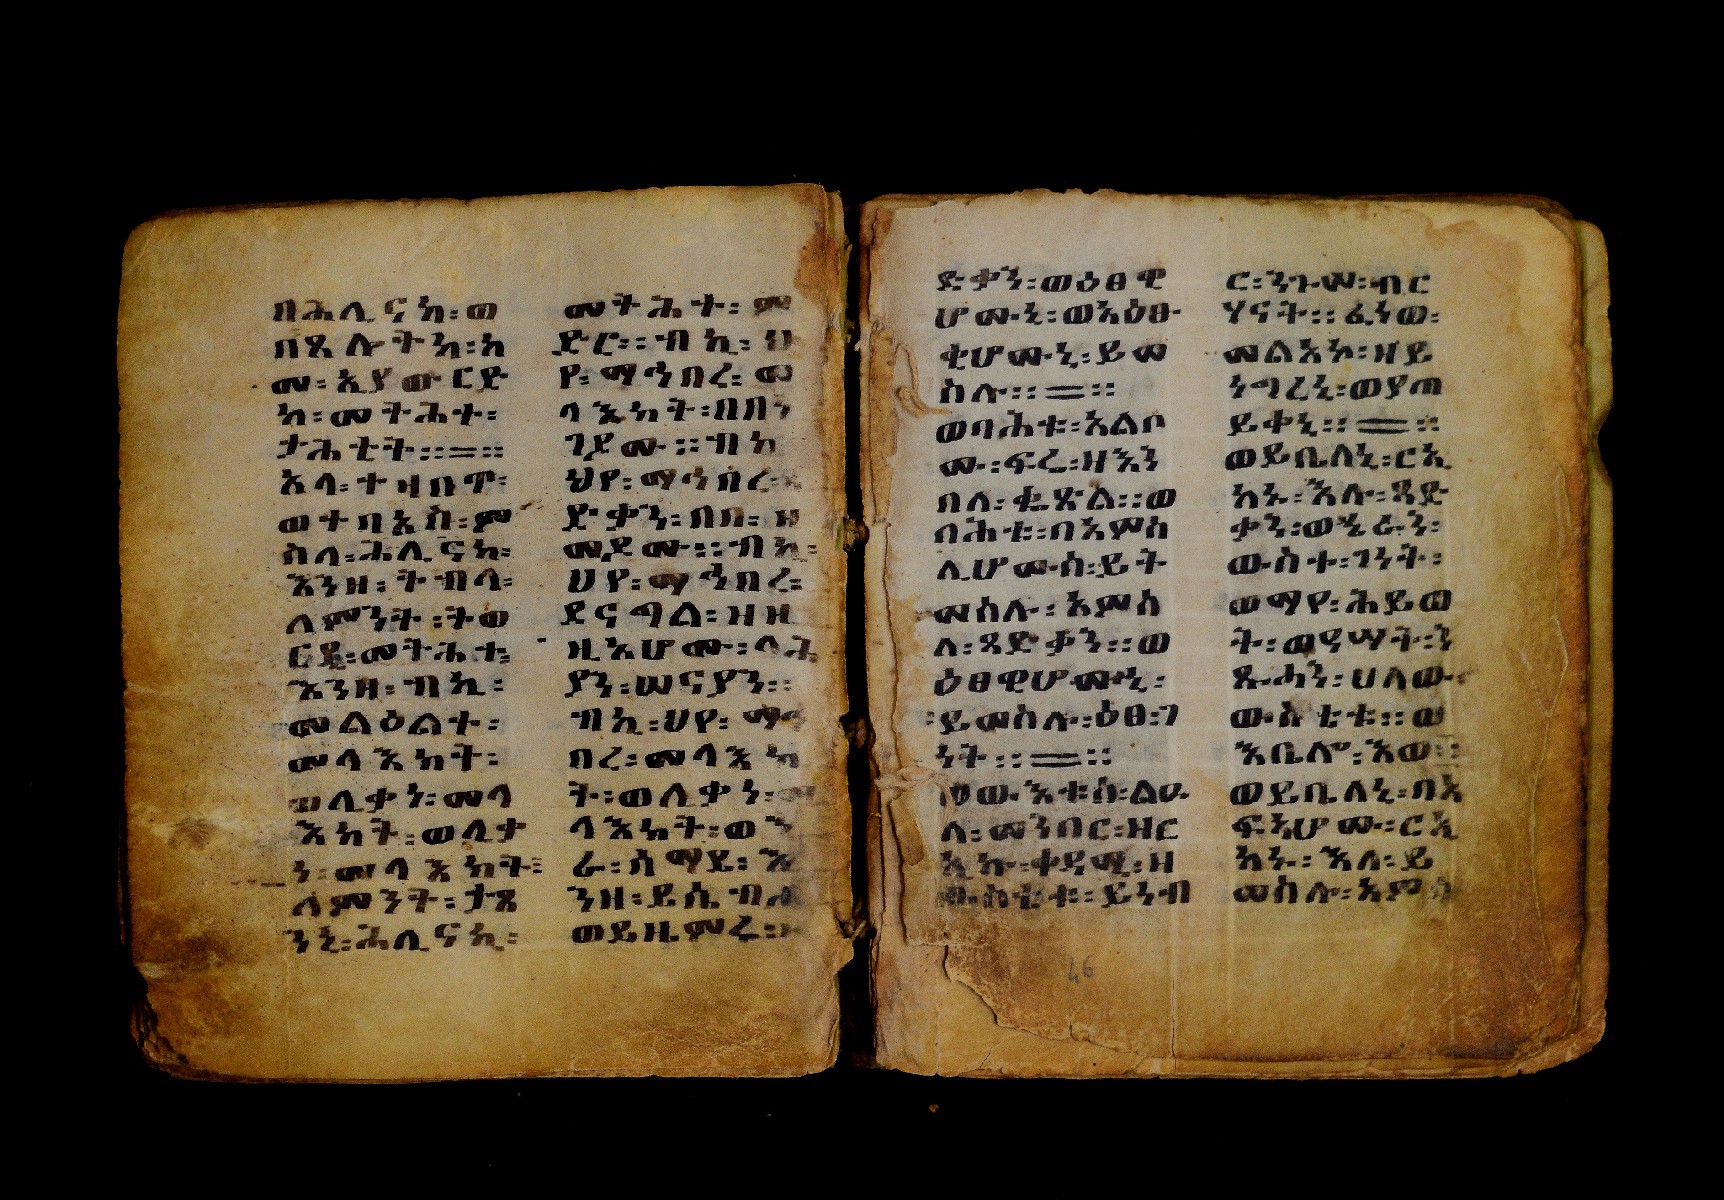 በሕሊናከ፡ወ
በጸሎትከ፡ከ
መ፡ኢያውርድ
ከ፡መትሕተ፡
ታሕቲት፡፡=፡፡
እላ፡ተዛበጥ፡
ወተበአስ፡ም
ስለ፡ሕሊናከ፡
እንዘ፡ትብላ፡
ለምንት፡ትወ
ርጺ፡መትሕተ፡
እንዘ፡ብኪ፡
መልዕልተ፡
መላእክት፡
ወሊቃነ፡መላ
እክት፡ወሊቃ
ነ፡መላእክት፡
ለምንት፡ታጸ
ንኒ፡ሕሊናኪ፡
መትሕተ፡ም
ድር፡፡ብኪ፡ህ
የ፡ማኅበረ፡መ
ላእክት፡በበነ
ገዶሙ፡፡ብኪ
ህየ፡ማኅበረ፡
ድቃን፡በበ፡ዘ
መዶሙ፡፡ብኪ፡
ህየ፡ማኅበረ፡
ደናግል፡ዘዘ
ዚአሆሙ፡ላሕ
ያን፡ሠናያን፡፡
ብኪ፡ህየ፡ማኅ
በረ፡መላእክ
ት፡ወሊቃነ፡መ
ላእክት፡ወን
ራ፡ሰማይ፡እ
ንዘ፡ይሴብሑ
ወይዚምሩ፡
ድቃን፡ወዕፀዊ
ሆሙኒ፡ወእዕፀ
ቂሆሙኒ፡ይመ
ስሉ፡፡=፡፡
ወባሕቱ፡እልቦ
ሙ፡ፍሬ፡ዘእን
በለ፡ቈጽል፡፡ወ
በሕቱ፡በእምሳ
ሊሆሙሰ፡ይት
መሰሉ፡እምሳ
ለ፡ጻድቃን፡፡ወ
ዕፀዊሆሙኒ፡
ይመስሉ፡ዕፀ፡ገ
ነት፡፡=፡፡
ወውእቱሰ፡ልዑ
ለ፡መንበር፡ዘር
ኢኩ፡ቀዳሚ፡ዘ
ውስቴቱ፡ይነብ
ር፡ንጉሠ፡ብር
ሃናት፡፡ፈነወ፡
መልአከ፡ዘይ
ነግረኒ፡ወያጠ
ይቀኒ፡፡=፡፡
ወይቤለኒ፡ርኢ
ከኑ፡እሉ፡ጻድ
ቃን፡ወኄራን፡
ውስተ፡ገነት፡
ወማየ፡ሕይወ
ት፡ወዓሣት፡ን
ጹሓን፡ህለው፡
ውስቴቱ፡፡ወ
እቤሎ፡እወ፡፡
ወይቤለኒ፡በእ
ፍኣሆሙ፡ርኢ
ከኑ፡እለ፡ይ
መስሉ፡እምሳ
46